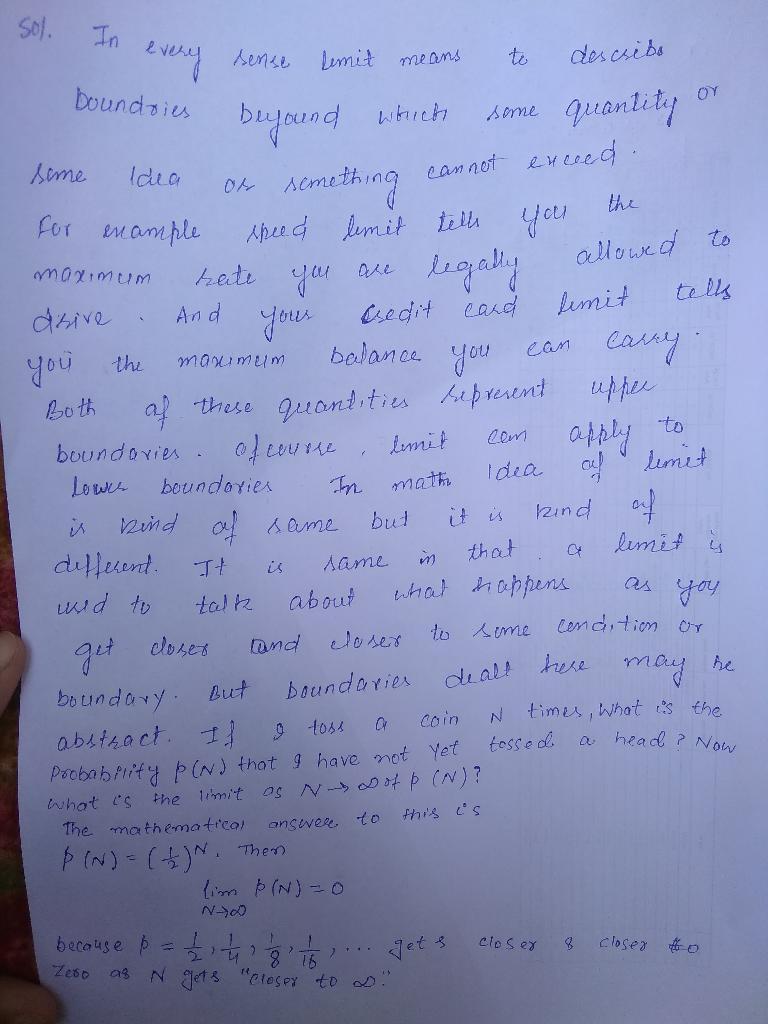 Sol. In every sense limit means to describe
boundries beyound which some quantity or
some Idea or something cannot exceed.
For example speed limit tells you the
maximum rate you are legally allowed to
drive. And your credit card limit tells
you the maximum balance you can carry.
Both of these quantities represent upper
boundaries. ofcourse, limit can apply to
Lower boundaries In math Idea of limit
is kind of same but it is kind of
different. It is same in that a limit is
used to talk about what happens as you
get closer and closer to some condition or
boundary. But boundaries dealt here may be
abstract. If I toss a coin N times, What is the
Probability p(N) that I have not yet tossed a head? Now
what is the limit as N → ∞ of p (N)?
The mathematical answer to this is
p (N) = (1/2)^N. Then
lim p(N) = 0
N→∞
because p = 1/2, 1/4, 1/8, 1/16, ... gets closer & closer to
Zero as N gets "closer to ∞."